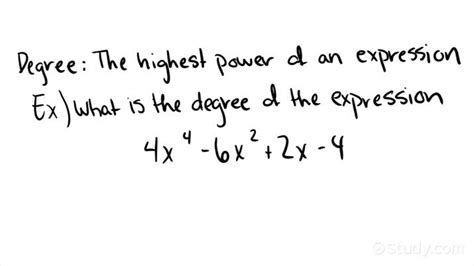 Degree: The highest power of an expression
Ex) What is the degree of the expression
4x⁴ - 6x² + 2x - 4
©study.com